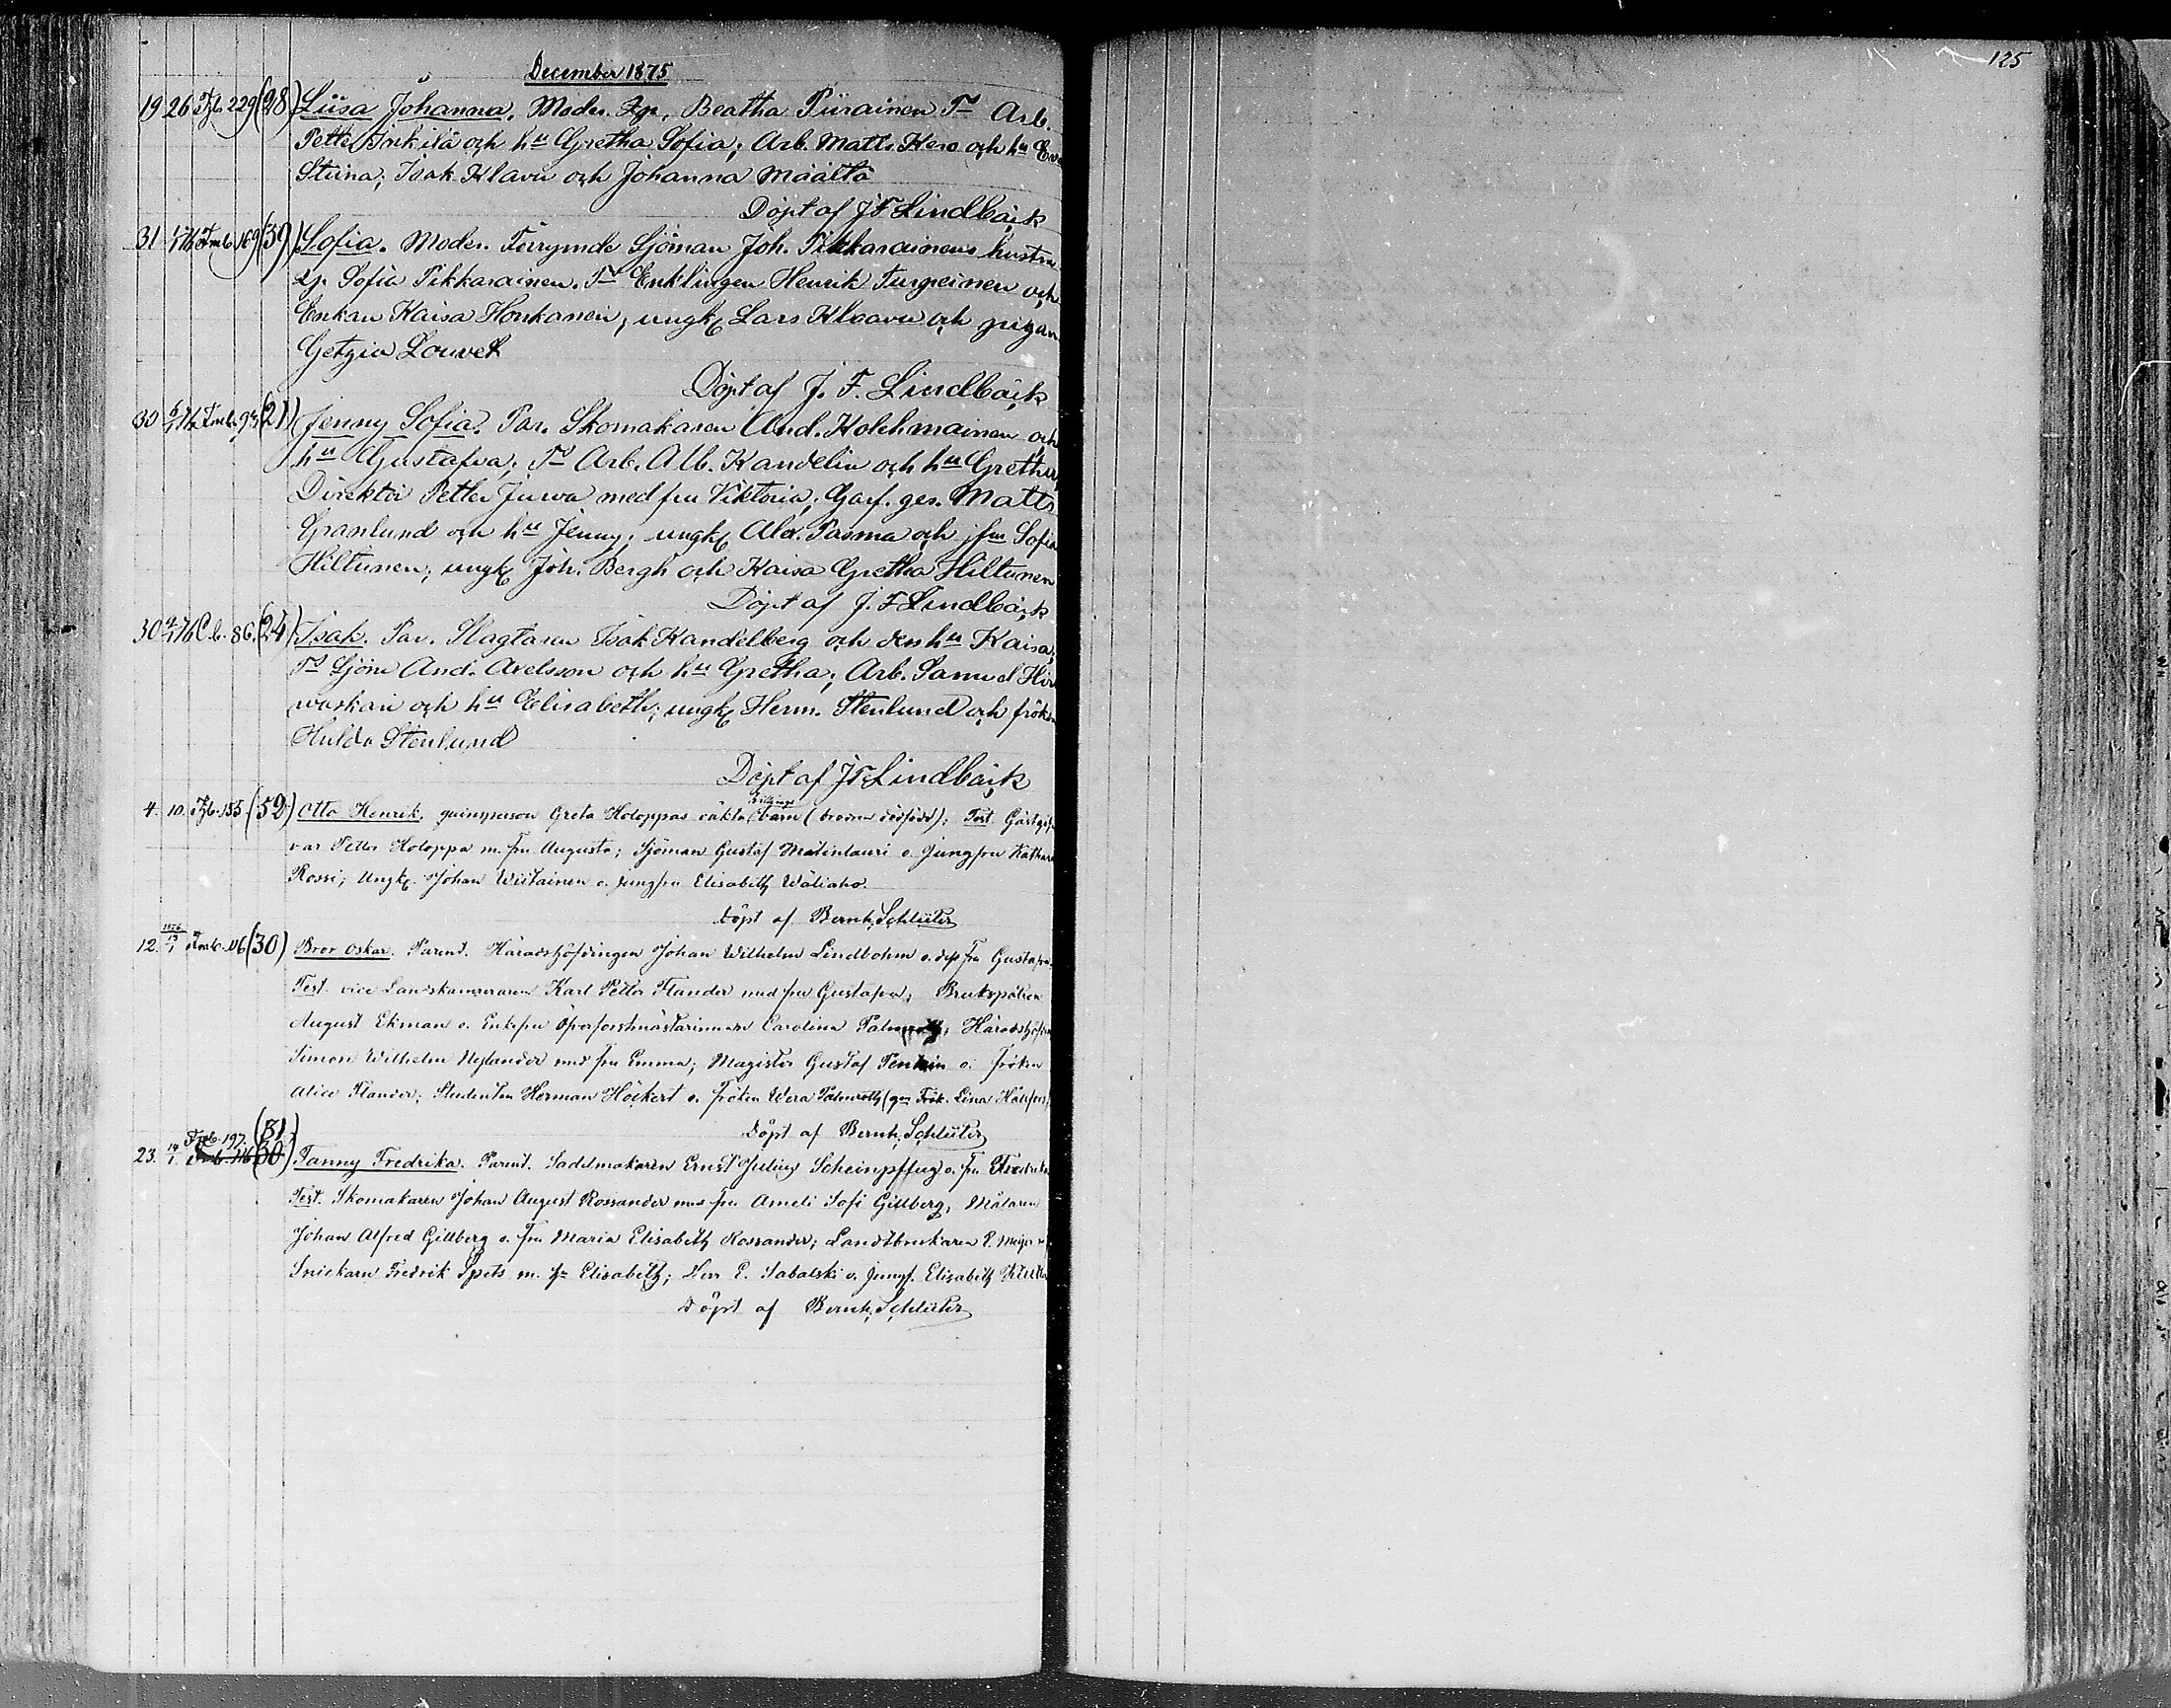 125
December 1875
19 26 229 (28) Liisa Johanna. Moder. Qp. Beatha Piirainen Ts Arb.
Petter Inkilä och hu Gretha Sofia; Arb. Matts Kero och hu Eva
Stiina; Isak Klavu och Johanna Määttä
Döpt af J F Lindbäck
31 169 (39) Sofia. Moder. Förrymde Sjöman Joh. Pikkarainens hustru
Sofia Pikkarainen. Ts Enklingen Henrik Turpeinen och
Enkan Kaisa Honkanen; ungk Lars Klaavu och pigan
Louvet
Döpt af J. F. Lindbäck
30 (21) Jenny Sofia. Par. Skomakaren And. Holehmainen och
hu Gustafva; Ts Arb. Alb. Kandelin och hu Gretha,
Direktör Petter Juwa med fru Viktoria; Garf. ges. Matts
Granlund och hu Jenny; ungk Alex. Pasma och jfru Sofia
Hiltunen; ungk Joh. Bergh och Kaisa Gretha Hiltunen
Döpt af J. F Lindbäck
30 C.b. 86. (24) Isak. Par. Slagtaren Isak Kandelberg och dess hu Kaisa;
Ts Sjöm And. Axelsson och hu Gretha; Arb. Samuel Hir
waskari och hu Elisabeth; ungk Herm. Stenlund och frök
Hulda Stenlund
Döpt af J F Lindbäck
4. 10. 155 (52) Otto Henrik, qvinsperson Greta Holoppas oäkta tvillings barn (brodren dödfödd); Test. Gästgif
var Petter Holoppa m. fru Augusta; Sjöman Gustaf Matinlauri o. Jungfru Kathar
Rossi; Ungk. Johan Wiitainen o. jungfru Elisabeth Wäliaho.
Döpt af Bernh. Schlüter
1876
12. 116 (30) Bror Oskar. Parent. Häradshöfdingen Johan Wilhelm Lindbohm o. dess fru Gustafva.
Test. vice Landskamreraren Karl Petter Flander med fru Gustafva; Brukspatron
August Ekman o. Enkefru Öfverforstmästarinnan Carolina Palmroth; Häradshöfdin
Simon Wilhelm Nylander med fru Emma; Magister Gustaf o. fröken
Alice Flander; Studenten Herman Höckert o. fröken Wera Palmroth (gm Frök. Lina
(31) Döpt af Bernh. Schlüter
197.
23. 116 (30) Fanny Fredrika. Parent. Sadelmakaren Ernst Julius Scheinpflug o. fru Fredrika
Test. Skomakaren Johan August Rossander med fru Ameli Sofi Gillberg; Målaren
Johan Alfred Gillberg o. fru Maria Elisabeth Rossander; Landtbrukaren
Snickarn Fredrik Spets m. fr Elisabeth; Herr E. Sabalski o. jungf. Elisabeth
Döpt af Bernh. Schlüter